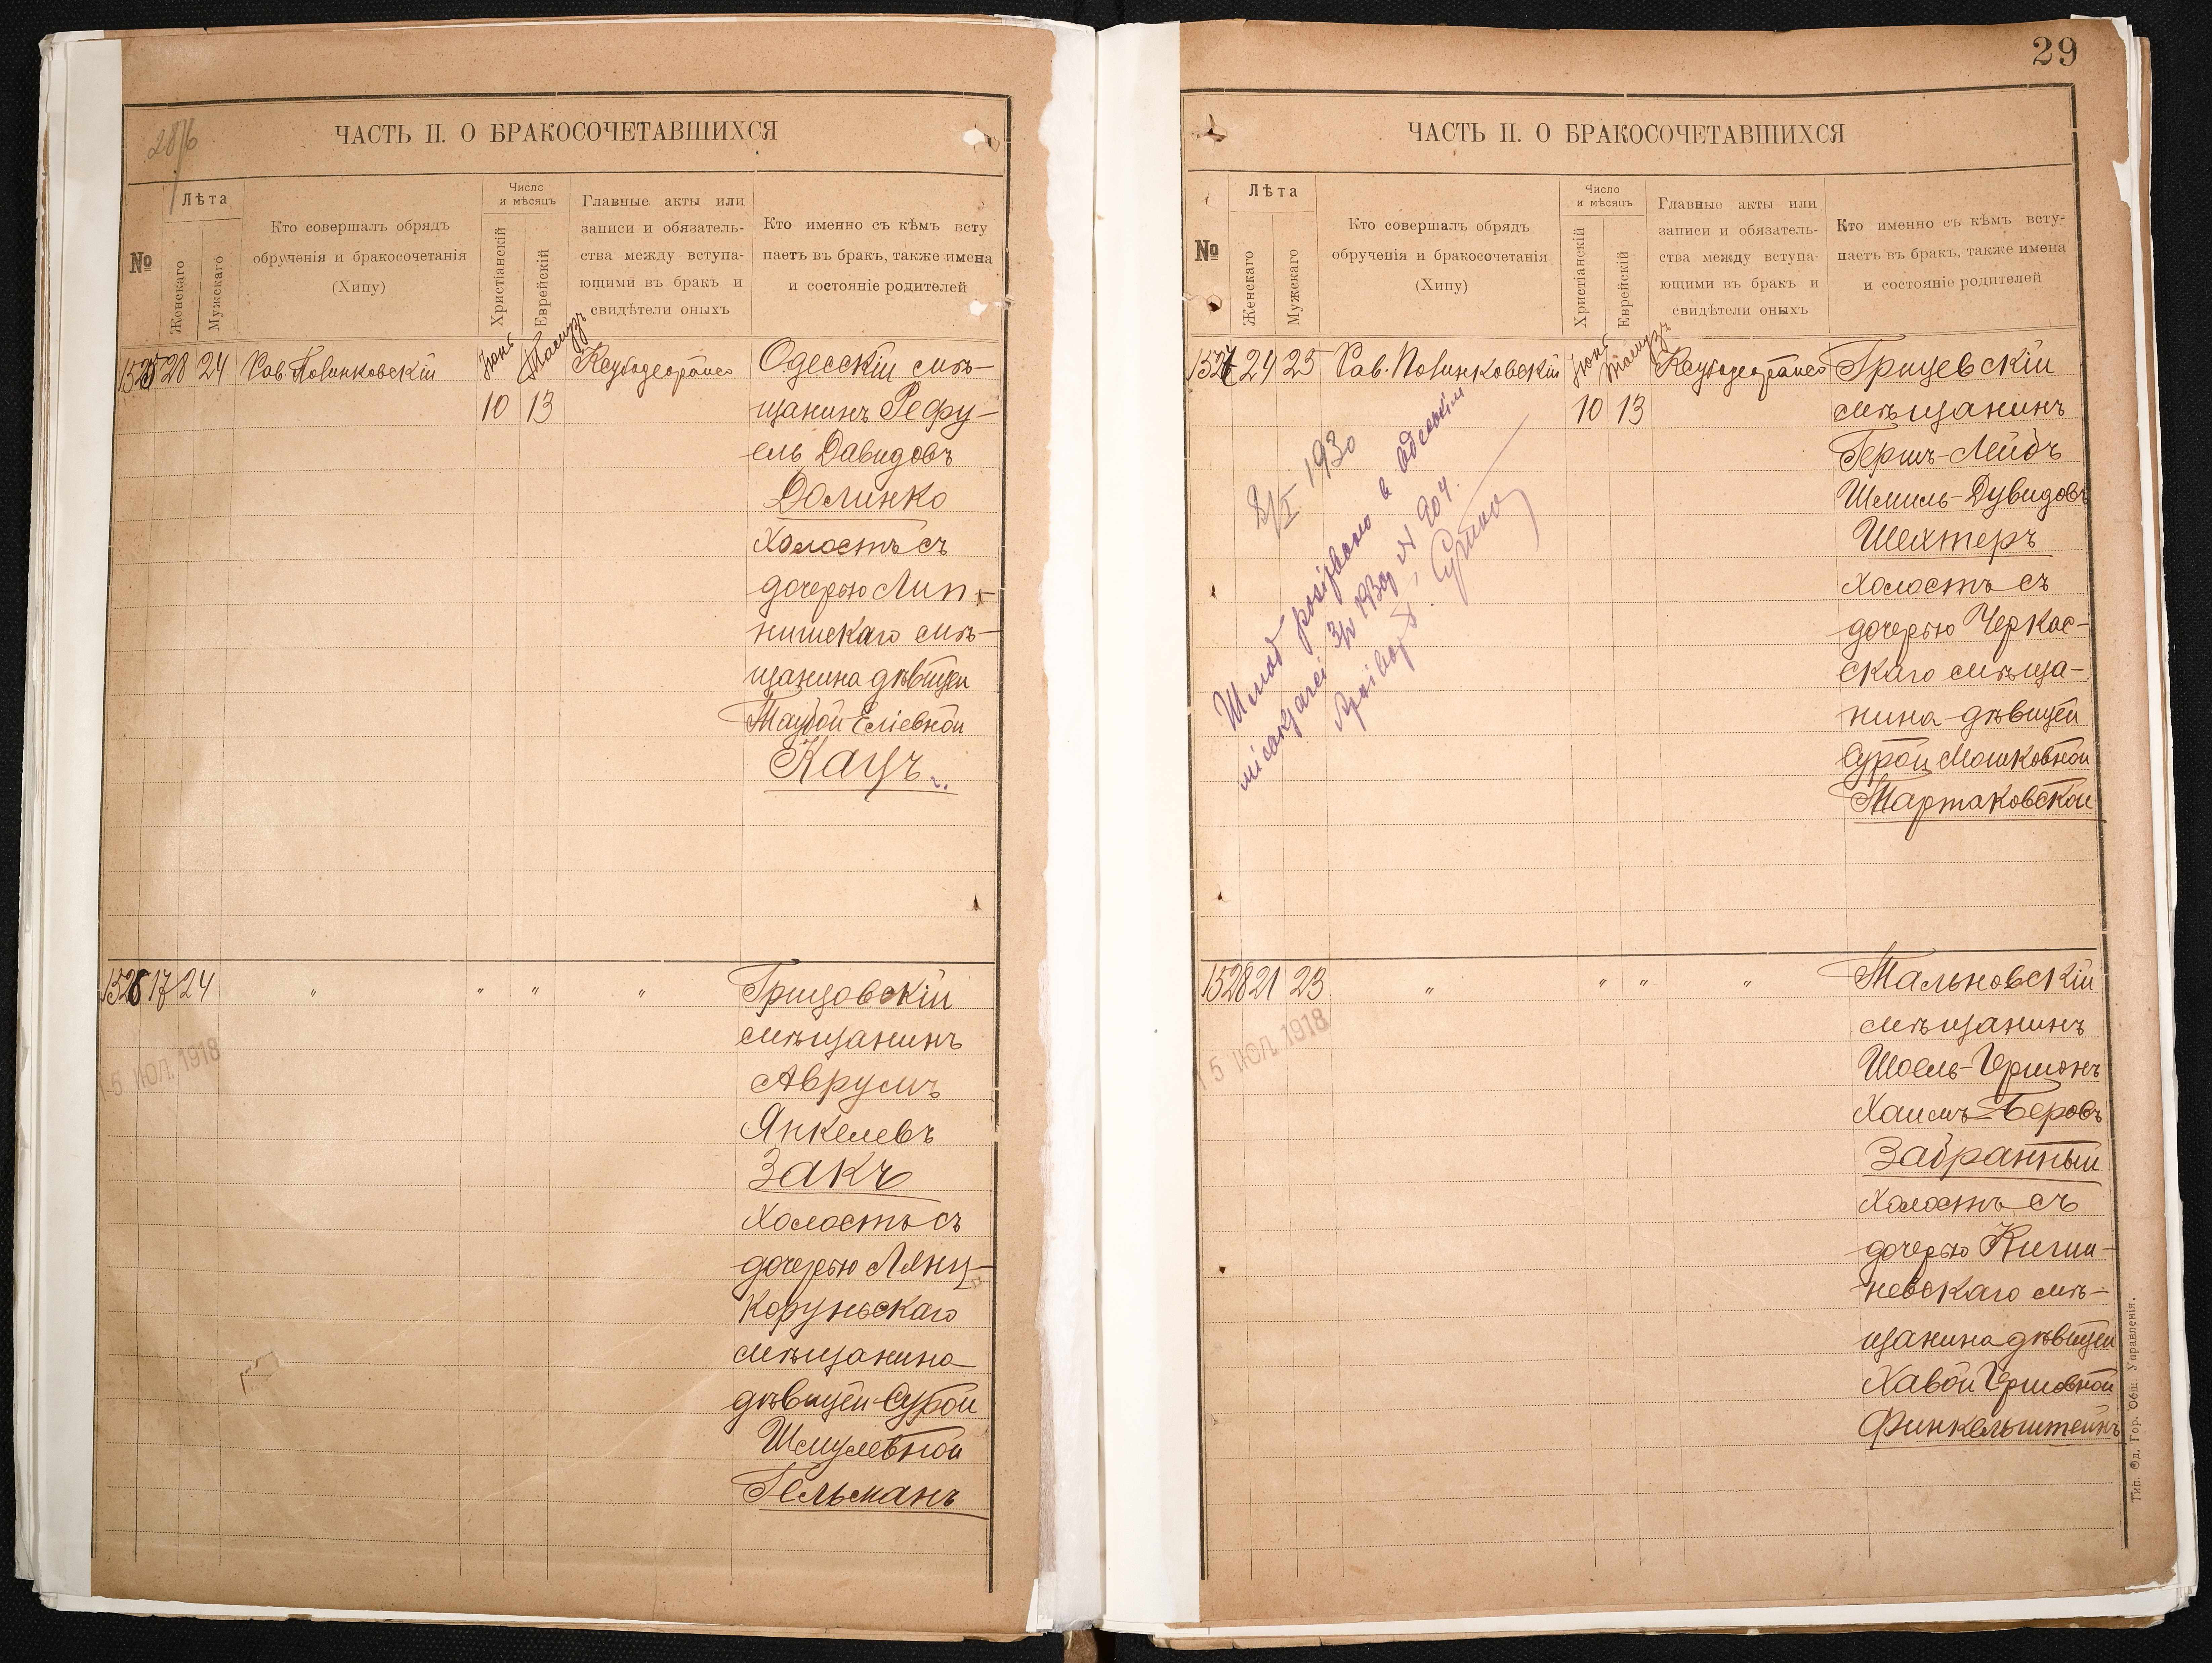 28/6
ЧАСТЬ II. О БРАКОСОЧЕТАВШИХСЯ
№
Лѣта
Женскаго
Мужскаго
Кто совершалъ обрядъ
обрученія и бракосочетанія
(Хипу)
Число
и мѣсяцъ
Христіанскій
Еврейскій
Главные акты или
записи и обязатель-
ства между вступа-
ющими въ бракъ и
свидѣтели оныхъ
Кто именно съ кѣмъ всту
паетъ въ бракъ, также имена
и состояніе родителей
1525 28 24 Рав. Повинковскій Іюнь Тамузъ Одесскій мѣ-
10 13 щанинъ Рефу-
ель Давидовъ
Долинко
холостъ съ
дочерью Лип-
нишскаго мѣ-
щанина дѣвицей
Таубой Еліевной
Кацъ.
1526 17 24 " " " " Грицовскій
мѣщанинъ
Аврумъ
Янкелевъ
Закъ
холостъ съ
дочерью Лянц-
коруньскаго
мѣщанина
дѣвицей Сурой
Шмулевной
Гельманъ
15 ІЮЛ. 1918
29
ЧАСТЬ II. О БРАКОСОЧЕТАВШИХСЯ
№
Лѣта
Женскаго
Мужскаго
Кто совершалъ обрядъ
обрученія и бракосочетанія
(Хипу)
Число
и мѣсяцъ
Христіанскій
Еврейскій
Главные акты или
записи и обязатель-
ства между вступа-
ющими въ бракъ и
свидѣтели оныхъ
Кто именно съ кѣмъ всту-
паетъ въ бракъ, также имена
и состояніе родителей
1527 24 25 Рав. Повинковскій Іюнь Тамузъ Грицевскій
10 13 мѣщанинъ
Гершъ-Лейбъ
Шмиль-Дувидовъ
Шехтеръ
холостъ съ
дочерью Черкас-
скаго мѣща-
нина дѣвицей
Сурой Мошковной
Мартаковской
1930
Шлюб розірвано в Одеськім
1930 № 904.
1528 21 23 " " " " Тальновскій
мѣщанинъ
Шоель-Гершонъ
Хаимъ-Беровъ
Забранный
холостъ съ
дочерью Киши-
невскаго мѣ-
щанина дѣвицей
Хавой Гершовной
Финкельштейнъ
15 ІЮЛ. 1918
Тип. Од. Гор. Общ. Управленія.